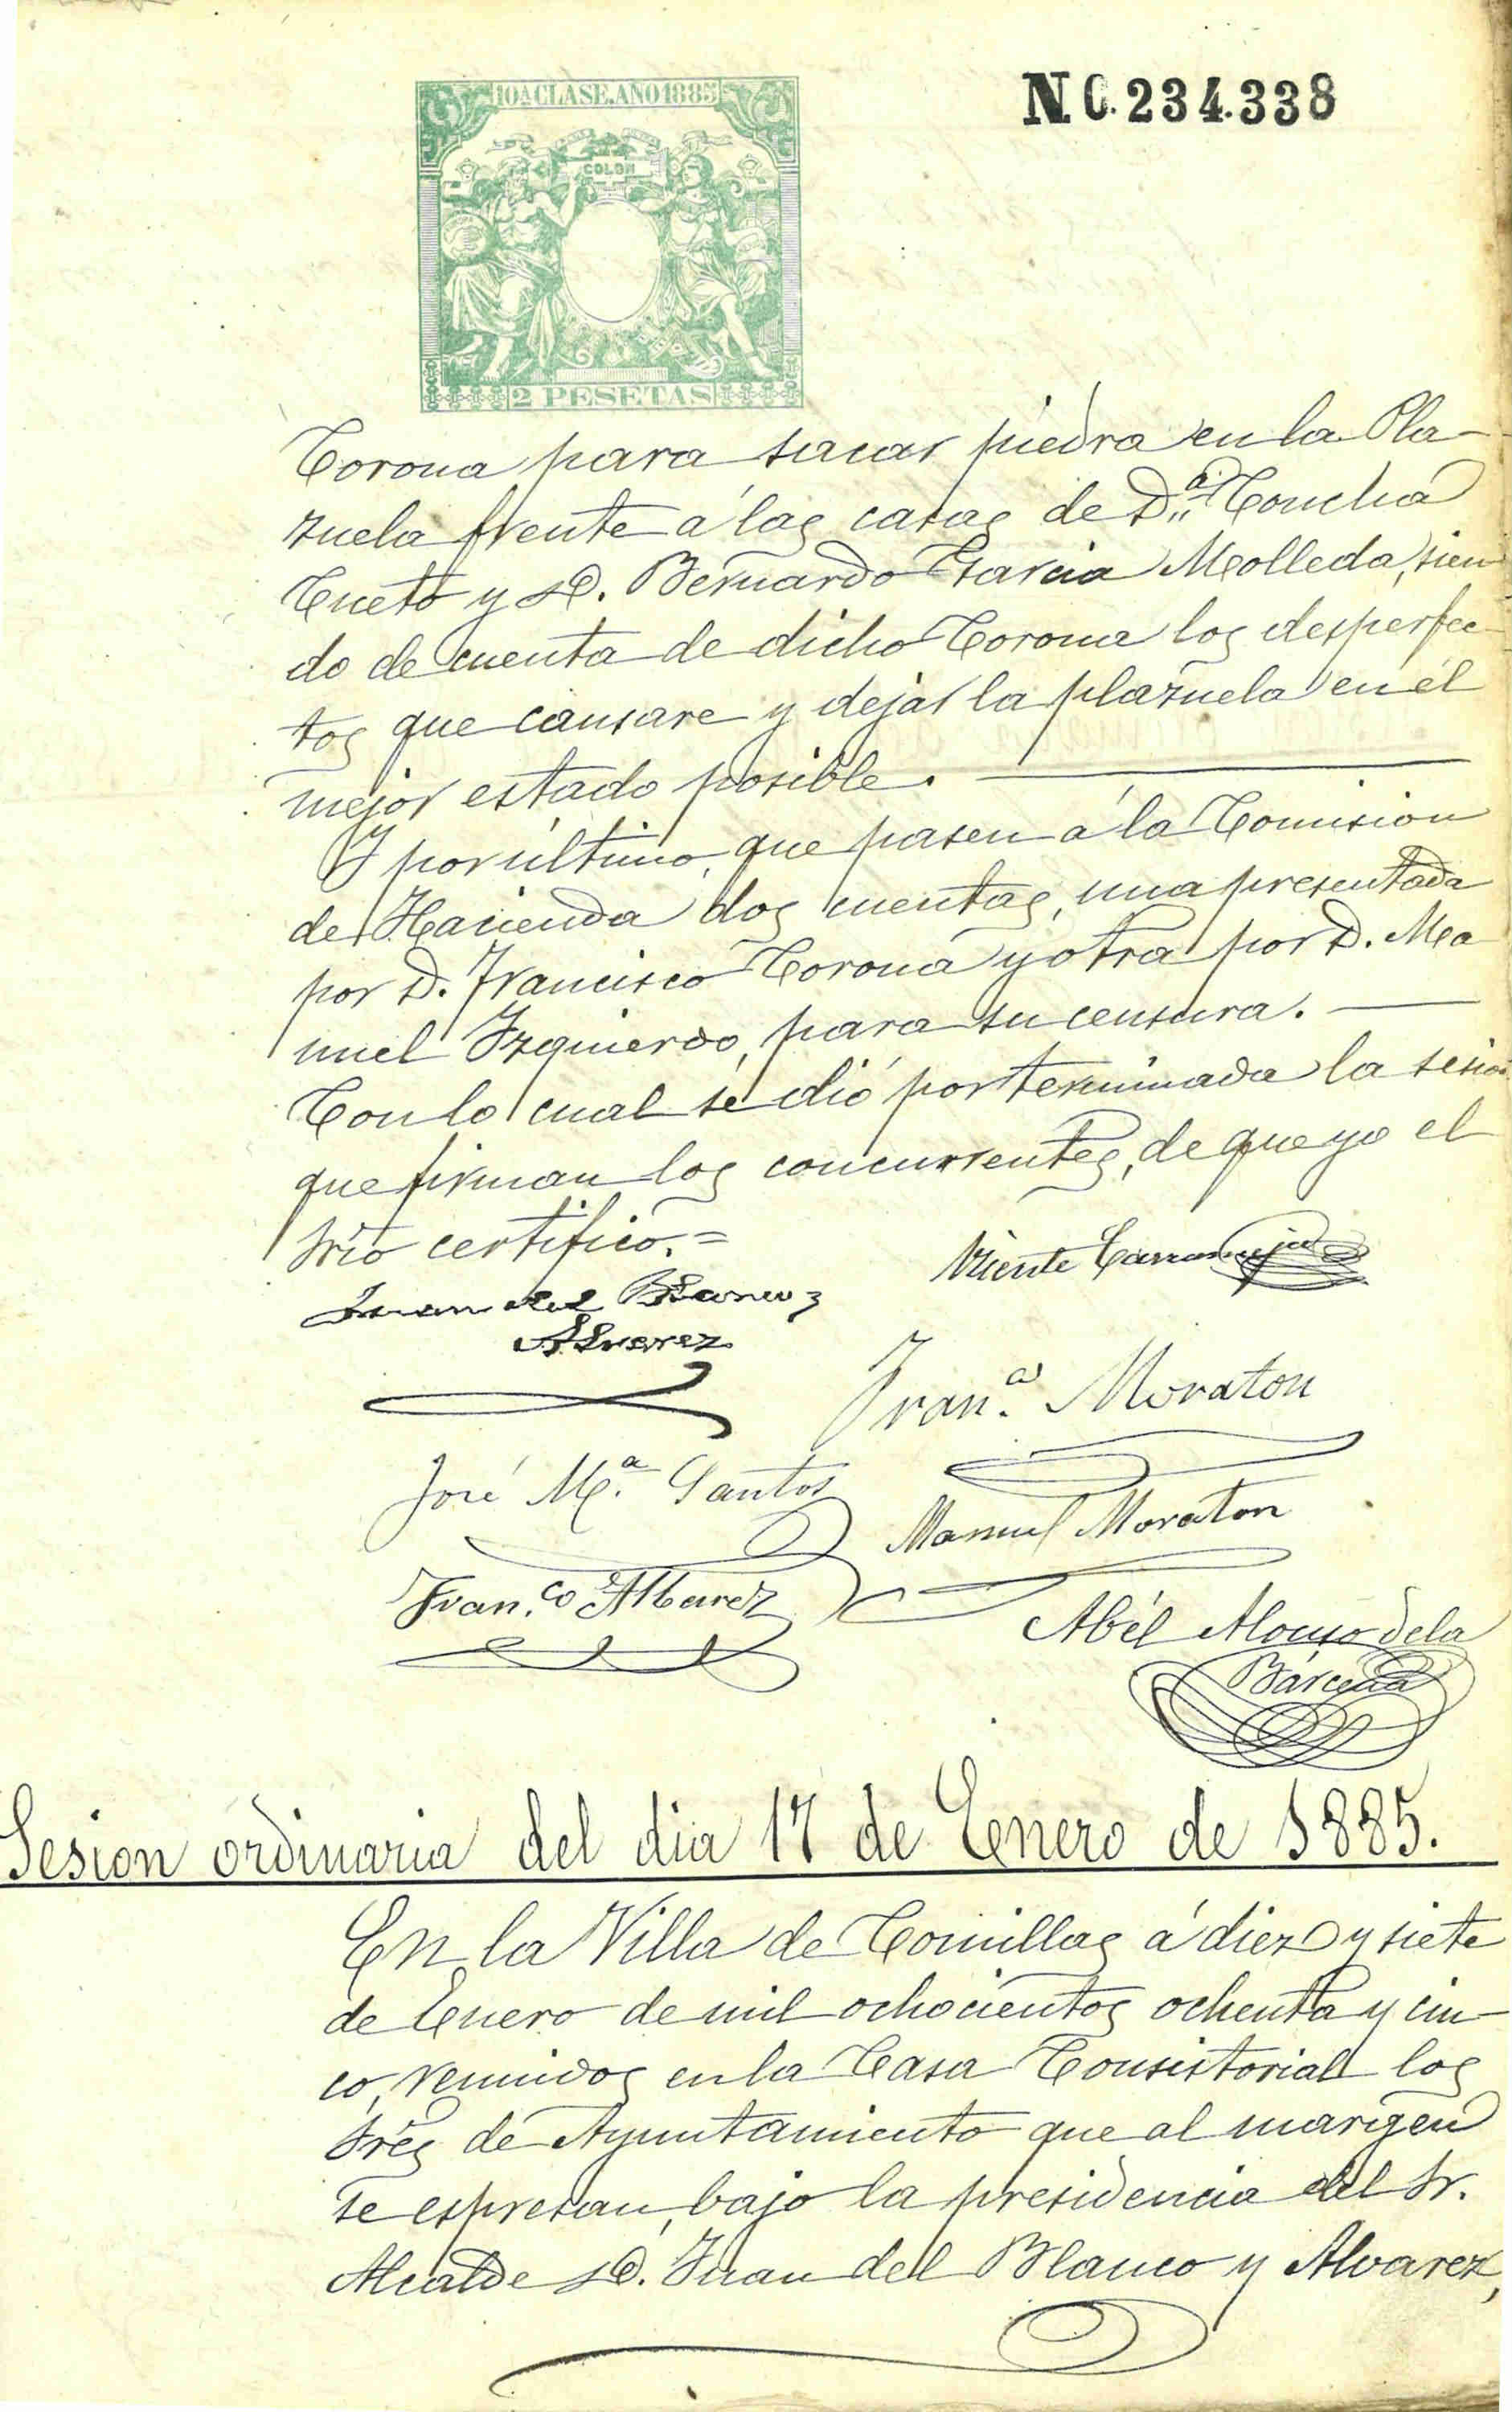 10ª CLASE. AÑO 1885
N. 0.234.338
COLON
2 PESETAS
Corona para sacar piedra en la Pla-
zuela frente á las casas de D.ª Concha
Cueto y D. Bernardo Garcia Molleda, sien
do de cuenta de dicho Corona los desperfec
tos que causare y dejar la plazuela en él
mejor estado posible.
Y por último, que pasen á la Comision
de Hacienda dos cuentas, una presentada
por D. Francisco Corona y otra por D. Ma
nuel Izquierdo, para su censura.
Con lo cual se dió por terminada la sesion
que firman los concurrentes, de que yo el
Srio certifico.=
Vicente
Juan del Blanco y
Alvarez
Fran.ᶜᵒ Moraton
José M.ª Santos
Manuel Moraton
Fran.ᶜᵒ Albarez
Abél Alonso de la
Bárcena
Sesion ordinaria del dia 17 de Enero de 1885.
En la Villa de Comillas á diez y siete
de Enero de mil ochocientos ochenta y cin-
co, reunidos en la Casa Consistorial los
Sres de Ayuntamiento que al margen
se espresan, bajo la presidencia del Sr.
Alcalde D. Juan del Blanco y Alvarez,